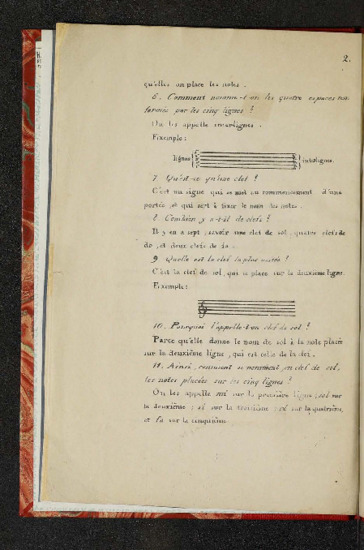 2.
qu'elles on place les notes.
6. Comment nomme-t-on les quatre espaces
formés par les cinq lignes ?
On les appelle interlignes.
Exemple :
lignes interlignes.
7. Qu'est-ce qu'une clef ?
C'est un signe qui se met au commencement d'une
portée, et qui sert à fixer le nom des notes.
8. Combien y a-t-il de clefs ?
Il y en a sept, savoir une clef de sol, quatre clefs de
do, et deux clefs de
9. Quelle est la clef la plus usitée ?
C'est la clef de sol, qui se place sur la deuxième ligne.
Exemple :
10. Pourquoi l'appelle-t-on clef de sol ?
Parce qu'elle donne le nom de sol à la note placée
sur la deuxième ligne, qui est celle de la clef.
11. Ainsi, comment se nomment, en clef de sol,
les notes placées sur les cinq lignes ?
On les appelle mi sur la première ligne ; sol sur
la deuxième ; si sur la troisième ; ré sur la quatrième,
et fa sur la cinquième.